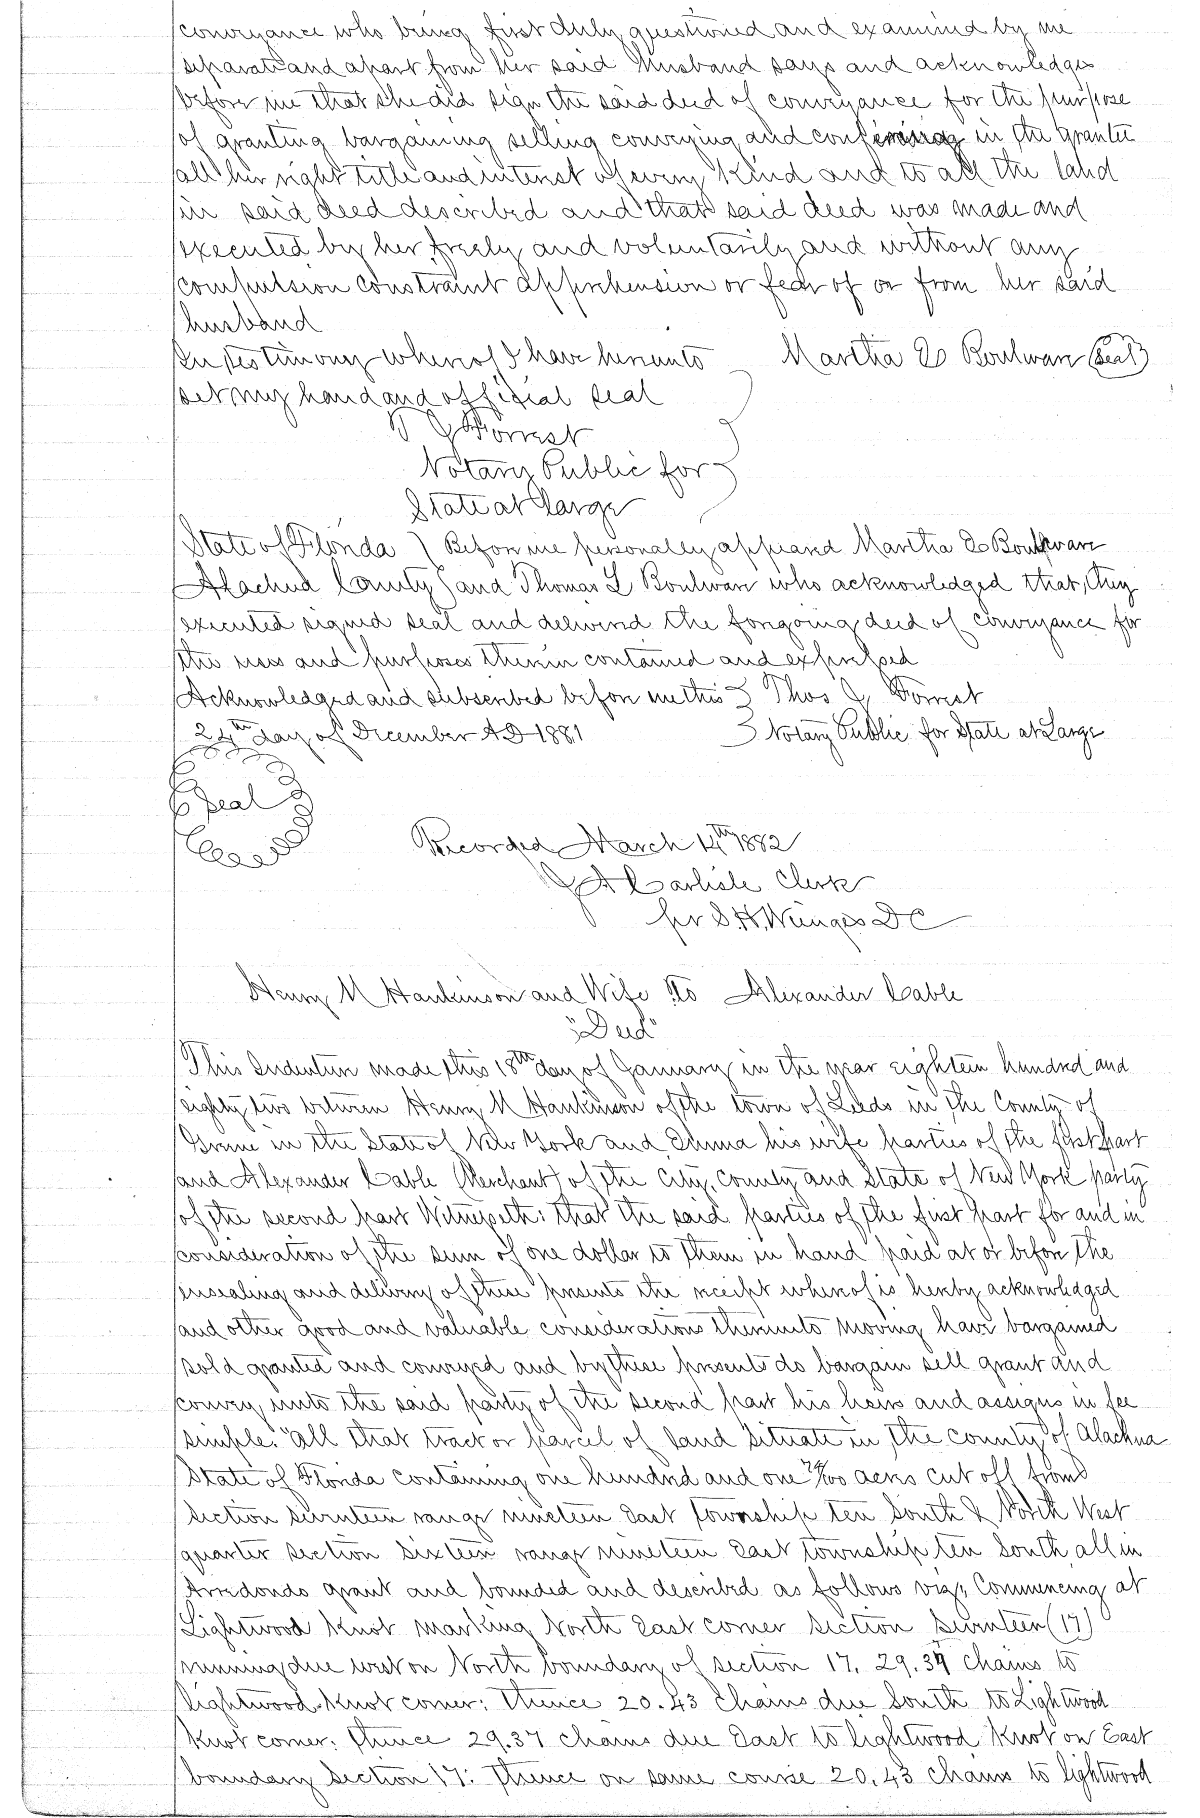 conveyance who being first duly questioned and examined by me
separate and apart from her said Husband says and acknowledges
before me that she did sign the said deed of conveyance for the purpose
of granting bargaining selling conveying and confirming in the grantee
all her right title and interest of every kind and to all the land
in said deed described and that said deed was made and
executed by her freely and voluntarily and without any
compulsion constraint apprehension or fear of or from her said
husband
In testimony whereof I have hereunto Martha E Boulware (Seal)
set my hand and official seal
T J Forrest
Notary Public for
State at Large
State of Florida } Before me personally appeared Martha E Boulware
Alachua County } and Thomas L Boulware who acknowledged that they
executed signed seal and delivered the foregoing deed of conveyance for
the uses and purposes therein contained and expressed
Acknowledged and subscribed before me this } Thos J Forrest
24th day of December AD 1881 } Notary Public for State at Large
Seal
Recorded March 14th 1882
J A Carlisle Clerk
per S. H. Wienges DC
Henry M Hankinson and Wife To Alexander Cable
"Deed"
This Indenture made this 18th day of January in the year eighteen hundred and
eighty two between Henry M Hankinson of the town of Leeds in the County of
Greene in the State of New York and Emma his wife parties of the first part
and Alexander Cable (Merchant) of the City, County and State of New York party
of the second part Witnesseth: that the said parties of the first part for and in
consideration of the sum of one dollar to them in hand paid at or before the
ensealing and delivery of these presents the receipt whereof is hereby acknowledged
and other good and valuable considerations thereunto moving have bargained
sold granted and conveyed and by these presents do bargain sell grant and
convey unto the said party of the second part his heirs and assigns in fee
simple. "all that tract or parcel of land situate in the county of Alachua
State of Florida containing one hundred and one /100 acres cut off from
section seventeen range nineteen East township ten South & North West
quarter section sixteen range nineteen East township ten South all in
Arredondo grant and bounded and described as follows viz; Commencing at
Lightwood Knot marking North East corner section seventeen (17)
running due west on North boundary of section 17. 29.37 chains to
lightwood Knot corner: thence 20.43 chains due South to Lightwood
Knot corner: thence 29.37 chains due East to lightwood Knot on East
boundary Section 17: thence on same course 20.43 chains to lightwood